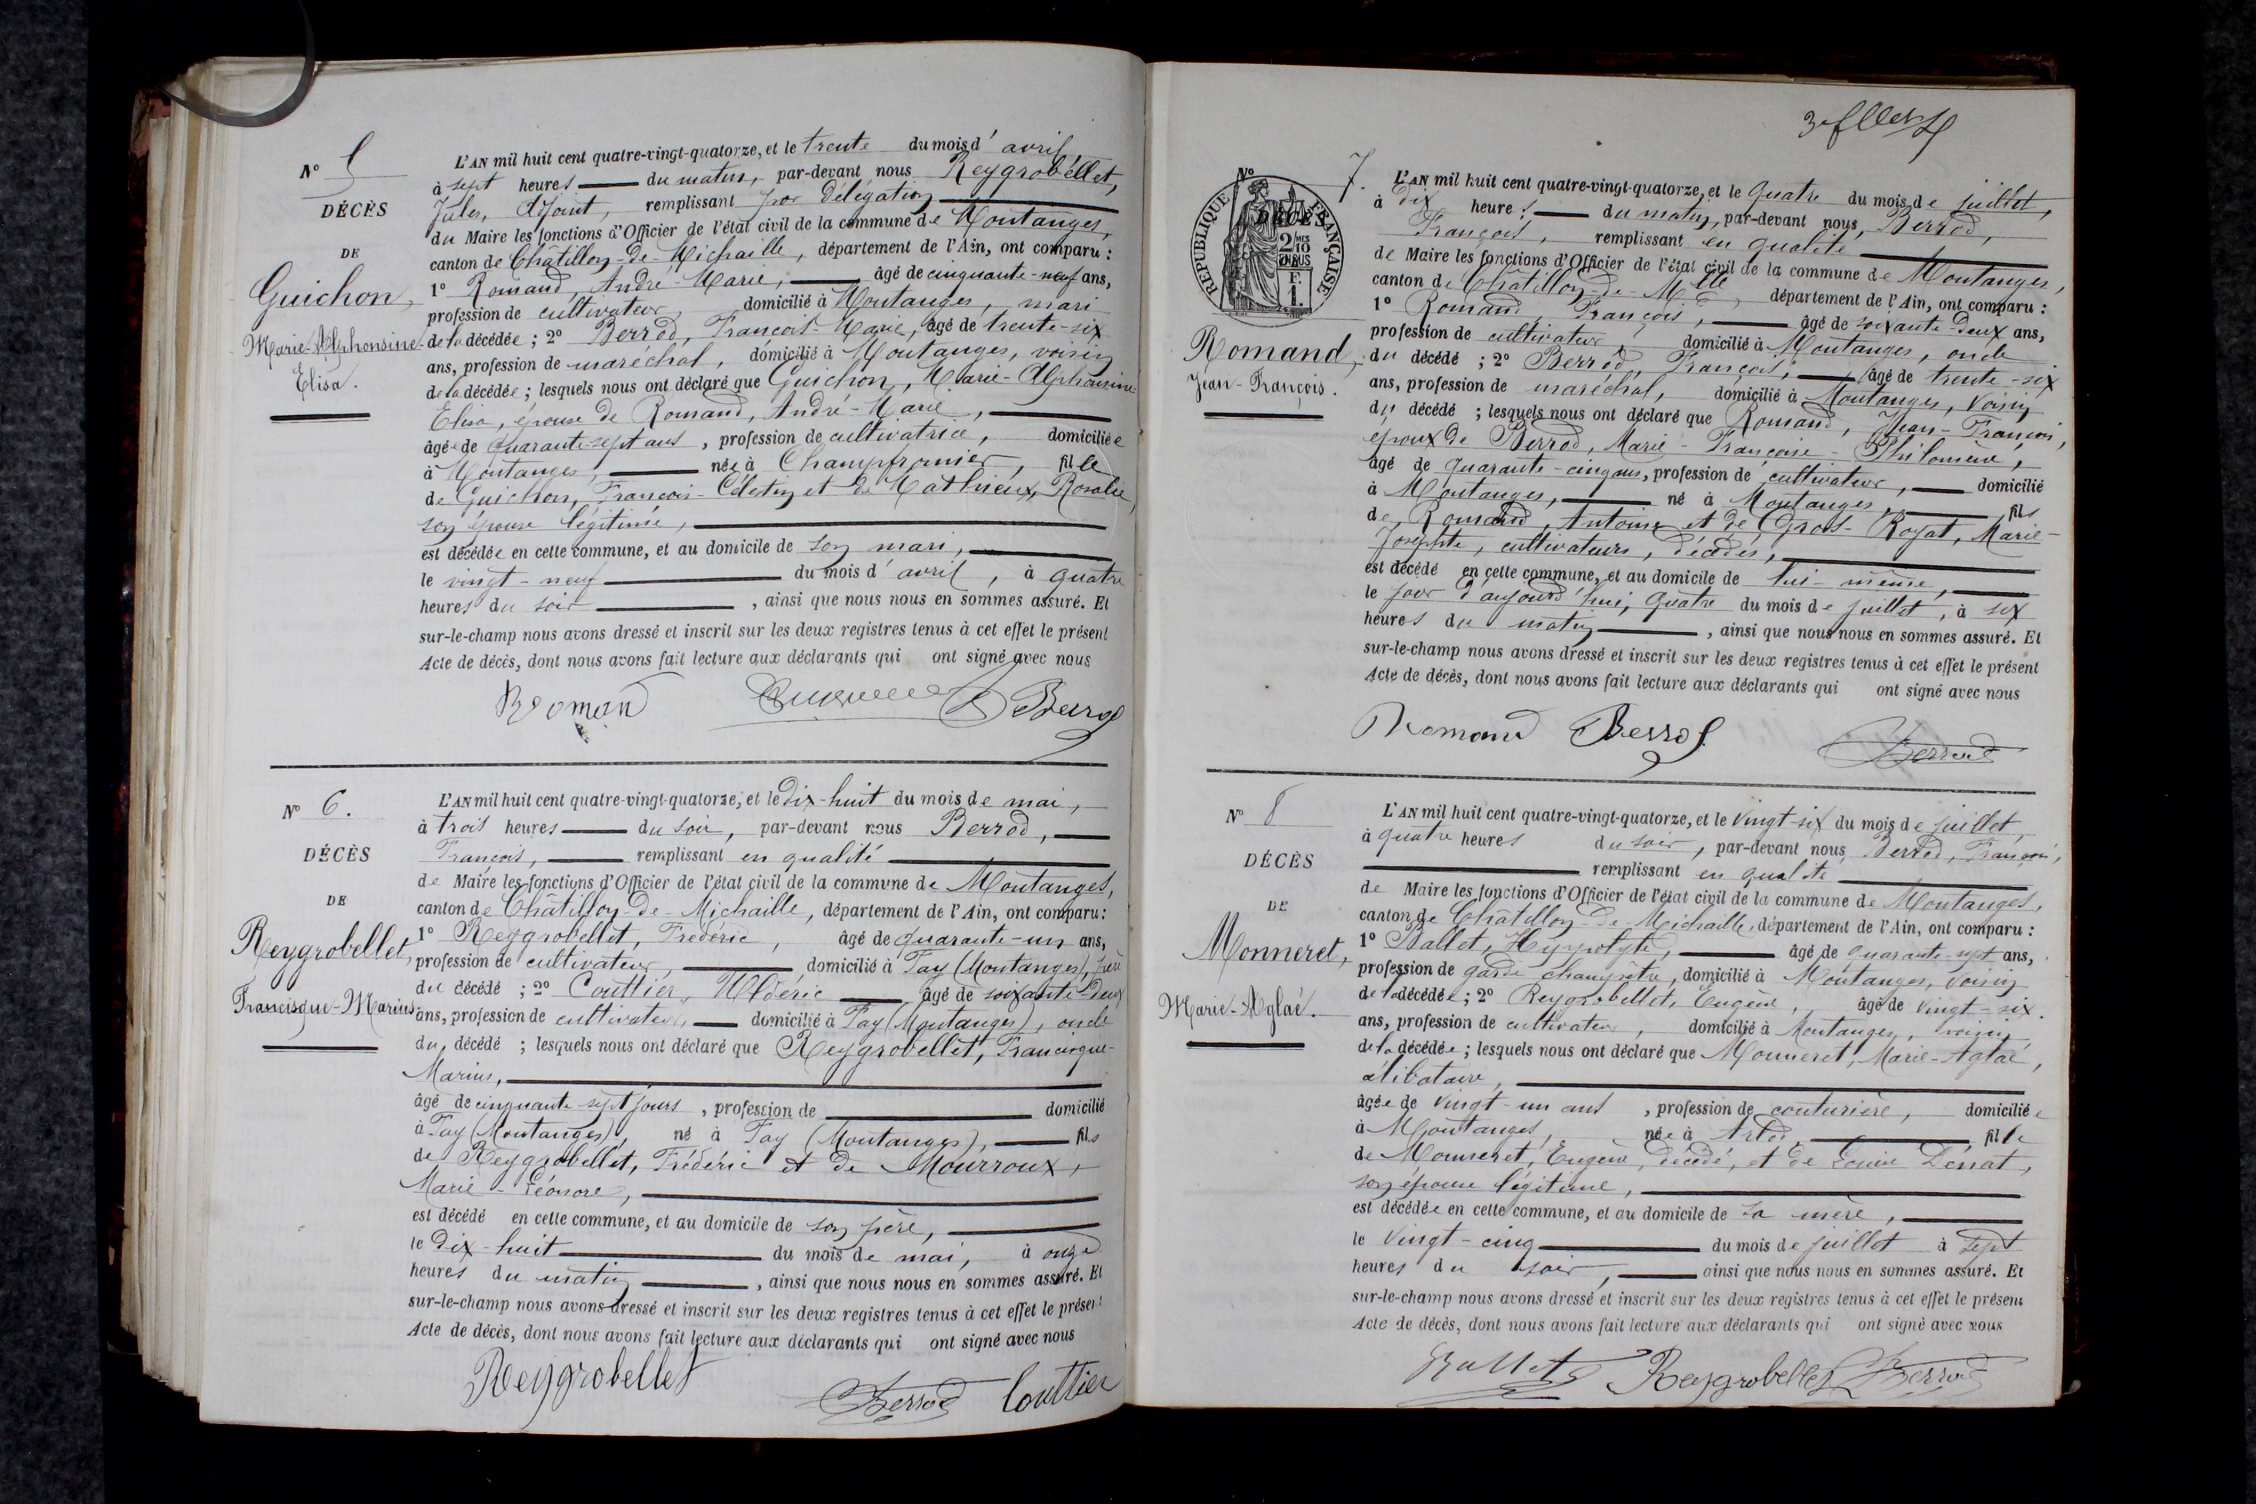 N° 5
DÉCÈS
DE
Guichon,
Marie-Alphonsine-
Elisa.
L'AN mil huit cent quatre-vingt-quatorze, et le trente du mois d'avril,
à sept heures du matin, par-devant nous Reygrobellet,
Jules, Adjoint, remplissant par délégation
du Maire les fonctions d'Officier de l'état civil de la commune de Montanges,
canton de Châtillon-de-Michaille, département de l'Ain, ont comparu :
1° Romand, André-Marie, âgé de cinquante-neuf ans,
profession de cultivateur, domicilié à Montanges, mari
de la décédée ; 2° Berrod, François-Marie, âgé de trente-six
ans, profession de maréchal, domicilié à Montanges, voisin
de la décédée ; lesquels nous ont déclaré que Guichon, Marie-Alphonsine
Elisa, épouse de Romand, André-Marie,
âgée de quarante-sept ans, profession de cultivatrice, domiciliée
à Montanges, née à Champfromier, fille
de Guichon, François-Célestin et de Mathieux, Rosalie,
son épouse légitime,
est décédée en cette commune, et au domicile de son mari,
le vingt-neuf du mois d'avril, à quatre
heures du soir, ainsi que nous nous en sommes assuré. Et
sur-le-champ nous avons dressé et inscrit sur les deux registres tenus à cet effet le présent
Acte de décès, dont nous avons fait lecture aux déclarants qui ont signé avec nous
Romand Berrod
N° 6.
DÉCÈS
DE
Reygrobellet,
Francisque-Marius
L'AN mil huit cent quatre-vingt-quatorze, et le dix-huit du mois de mai,
à trois heures du soir, par-devant nous Berrod,
François, remplissant en qualité
de Maire les fonctions d'Officier de l'état civil de la commune de Montanges,
canton de Châtillon-de-Michaille, département de l'Ain, ont comparu :
1° Reygrobellet, Frédéric, âgé de quarante-un ans,
profession de cultivateur, domicilié à Fay (Montanges), père
du décédé ; 2° Couttier, Uldéric âgé de soixante-deux
ans, profession de cultivateur, domicilié à Fay (Montanges), oncle
du décédé ; lesquels nous ont déclaré que Reygrobellet, Francisque-
Marius,
âgé de cinquante-sept jours, profession de domicilié
à Fay (Montanges), né à Fay (Montanges), fils
de Reygrobellet, Frédéric et de Mourroux,
Marie-Léonore,
est décédé en cette commune, et au domicile de son père,
le dix-huit du mois de mai, à onze
heures du matin, ainsi que nous nous en sommes assuré. Et
sur-le-champ nous avons dressé et inscrit sur les deux registres tenus à cet effet le présent
Acte de décès, dont nous avons fait lecture aux déclarants qui ont signé avec nous
Reygrobellet Berrod Couttier
N° 7.
RÉPUBLIQUE FRANÇAISE
2/10 EN SUS
F. 1.
Romand,
Jean-François.
L'AN mil huit cent quatre-vingt-quatorze, et le quatre du mois de juillet,
à dix heures du matin, par-devant nous, Berrod,
François, remplissant en qualité
de Maire les fonctions d'Officier de l'état civil de la commune de Montanges,
canton de Châtillon-de-Mlle, département de l'Ain, ont comparu :
1° Romand, François, âgé de soixante-deux ans,
profession de cultivateur, domicilié à Montanges, oncle
du décédé ; 2° Berrod, François, âgé de trente-six
ans, profession de maréchal, domicilié à Montanges, voisin
du décédé ; lesquels nous ont déclaré que Romand, Jean-François,
époux de Berrod, Marie-Françoise-Philomène,
âgé de quarante-cinq ans, profession de cultivateur, domicilié
à Montanges, né à Montanges, fils
de Romand, Antoine et de Gros-Royat, Marie-
Josephte, cultivateurs, décédés,
est décédé en cette commune, et au domicile de lui-même,
le jour d'aujourd'hui, quatre du mois de juillet, à six
heures du matin, ainsi que nous nous en sommes assuré. Et
sur-le-champ nous avons dressé et inscrit sur les deux registres tenus à cet effet le présent
Acte de décès, dont nous avons fait lecture aux déclarants qui ont signé avec nous
Romand Berrod Berrod
N° 8
DÉCÈS
DE
Monneret,
Marie-Aglaé.
L'AN mil huit cent quatre-vingt-quatorze, et le vingt-six du mois de juillet,
à quatre heures du soir, par-devant nous Berrod, François,
remplissant en qualité
de Maire les fonctions d'Officier de l'état civil de la commune de Montanges,
canton de Châtillon-de-Michaille, département de l'Ain, ont comparu :
1° Ballet, Hyppolyte, âgé de quarante-sept ans,
profession de garde champêtre, domicilié à Montanges, voisin
de la décédée ; 2° Reygrobellet, Eugène, âgé de vingt-six
ans, profession de cultivateur, domicilié à Montanges, voisin
de la décédée ; lesquels nous ont déclaré que Monneret, Marie-Aglaé,
célibataire,
âgée de vingt-un ans, profession de couturière, domiciliée
à Montanges, née à Arlod, fille
de Monneret, Eugène, décédé, et de Louise
son épouse légitime,
est décédée en cette commune, et au domicile de sa mère,
le vingt-cinq du mois de juillet à sept
heures du soir, ainsi que nous nous en sommes assuré. Et
sur-le-champ nous avons dressé et inscrit sur les deux registres tenus à cet effet le présent
Acte de décès, dont nous avons fait lecture aux déclarants qui ont signé avec nous
Ballet Reygrobellet Berrod